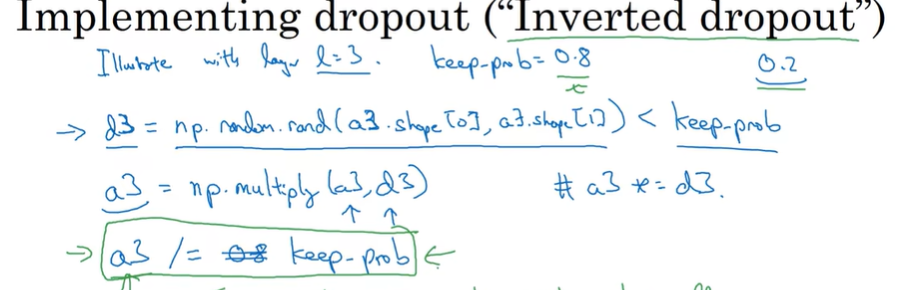 Implementing dropout ("Inverted dropout")
Illustrate with layer l=3. keep-prob= 0.8 0.2
→ d3 = np.random.rand(a3.shape[0], a3.shape[1]) < keep-prob
a3 = np.multiply(a3, d3) # a3 *= d3.
→ a3 /= 0.8 keep-prob ←